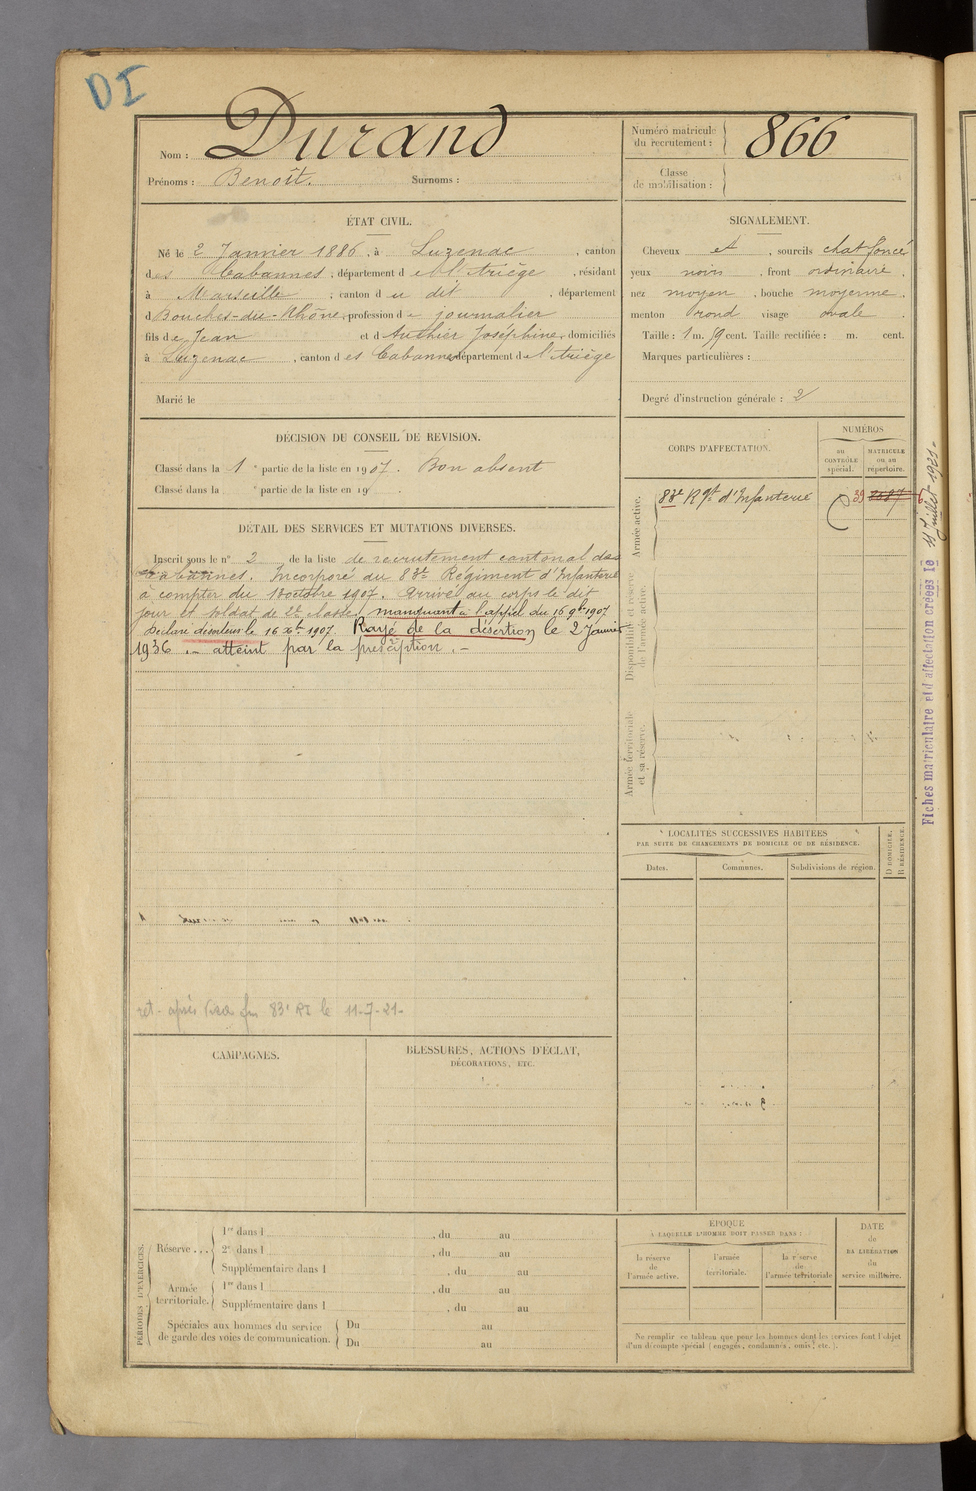 DI
Nom : Durand
Prénoms : Benoît. Surnoms :
Numéro matricule du recrutement : 866
Classe de mobilisation :
ÉTAT CIVIL.
Né le 2 Janvier 1886, à Luzenac, canton
des Cabannes, département de l'Ariège, résidant
à Marseille, canton du dit, département
d Bouches-du-Rhône, profession de journalier
fils de Jean et d'Authier Joséphine, domiciliés
à Luzenac, canton des Cabannes, département de l'Ariège
Marié le
SIGNALEMENT.
Cheveux et, sourcils chat foncé
yeux noirs, front ordinaire.
nez moyen, bouche moyenne.
menton rond visage ovale.
Taille : 1 m. cent. Taille rectifiée : m. cent.
Marques particulières :
Degré d'instruction générale : 2
DÉCISION DU CONSEIL DE REVISION.
Classé dans la 1 e partie de la liste en 1907. Bon absent
Classé dans la e partie de la liste en 19
DÉTAIL DES SERVICES ET MUTATIONS DIVERSES.
Inscrit sous le n° 2 de la liste de recrutement cantonal des
Cabannes. Incorporé au 83e Régiment d'Infanterie
à compter du octobre 1907. Arrivé au corps le dit
jour et soldat de 2e classe, manquant à l'appel du 16 9bre 1907
Déclaré déserteur le 16 Xbre 1907. Rayé de la désertion le 2 Janvier
1936 .- atteint par la prescription .-
après fin 83e RI le 11-7-21-
CORPS D'AFFECTATION.
NUMÉROS
au CONTRÔLE spécial.
MATRICULE ou au répertoire.
Armée active.
83e Rgt d'Infanterie
Disponibilité et réserve de l'armée active.
Armée territoriale et sa réserve.
Fiches matriculaire et d'affectation créées le 11 Juillet 1921-
LOCALITÉS SUCCESSIVES HABITÉES
PAR SUITE DE CHANGEMENTS DE DOMICILE OU DE RÉSIDENCE.
Dates. Communes. Subdivisions de région.
D DOMICILE.
R RÉSIDENCE.
CAMPAGNES.
BLESSURES, ACTIONS D'ÉCLAT,
DÉCORATIONS, ETC.
PÉRIODES D'EXERCICES.
Réserve ...
1re dans l , du au
2e dans l , du au
Supplémentaire dans l , du au
Armée territoriale.
1re dans l , du au
Supplémentaire dans l , du au
Spéciales aux hommes du service de garde des voies de communication.
Du au
Du au
ÉPOQUE
À LAQUELLE L'HOMME DOIT PASSER DANS :
la réserve de l'armée active.
l'armée territoriale.
la réserve de l'armée territoriale
DATE
de
LA LIBÉRATION
du
service militaire.
Ne remplir ce tableau que pour les hommes dont les services font l'objet
d'un décompte spécial (engagés, condamnés, omis, etc.).